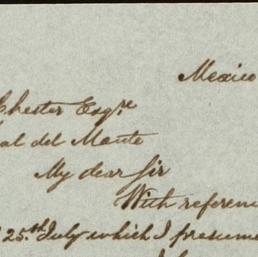 Mexico
Chester Esqre
al del Monte
My dear Sir
With referen
25.th July which I presume